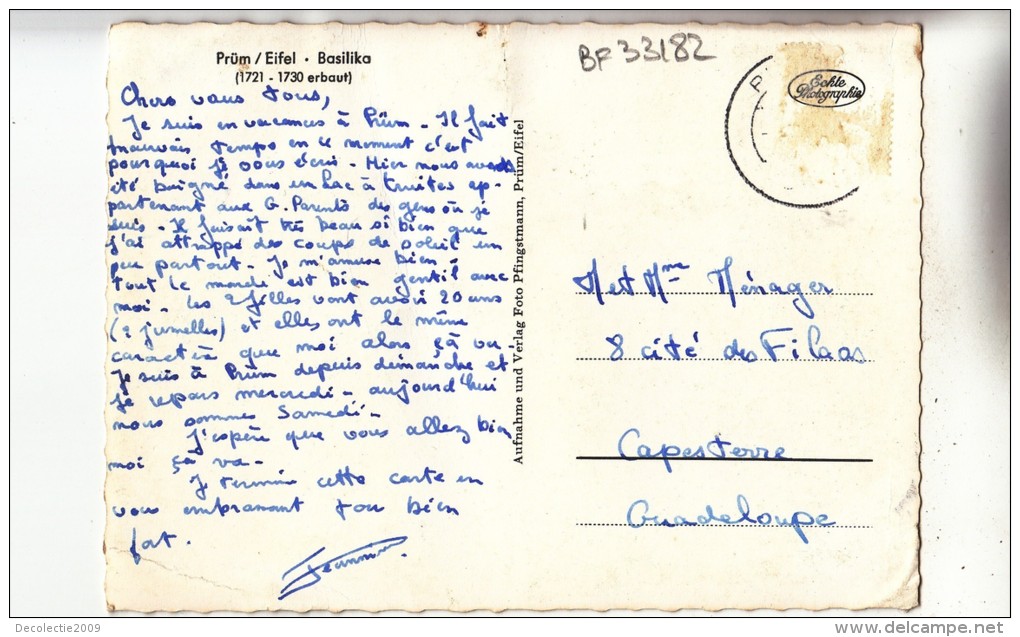 Prüm / Eifel · Basilika
(1721 - 1730 erbaut)
Chers vous tous,
Je suis en vacances à Prüm - Il fait
mauvais temps en ce moment c'est
pourquoi je vous écris - Hier nous avons
été baigné dans un Lac à truites ap-
partenant aux G. Parents des gens où je
suis - Il faisait très beau si bien que
j'ai attrappé des coups de soleil un
peu partout - Je m'amuse bien -
tout le monde est bien gentil avec
moi - Les 2 filles vont avoir 20 ans
(2 jumelles) et elles ont le même
caractère que moi alors çà va -
Je suis à Prüm depuis dimanche et
je repars mercredi - aujourd'hui
nous sommes Samedi -
J'espère que vous allez bien
moi çà va -
Je termine cette carte en
vous embrassant tous bien
fort.
Aufnahme und Verlag Foto Pfingstmann, Prüm/Eifel
BF 33182
Echte
Photographie
M et Mme Ménager
8 cité des Filaos
Capesterre
Guadeloupe
Decolectie2009
www.delcampe.net